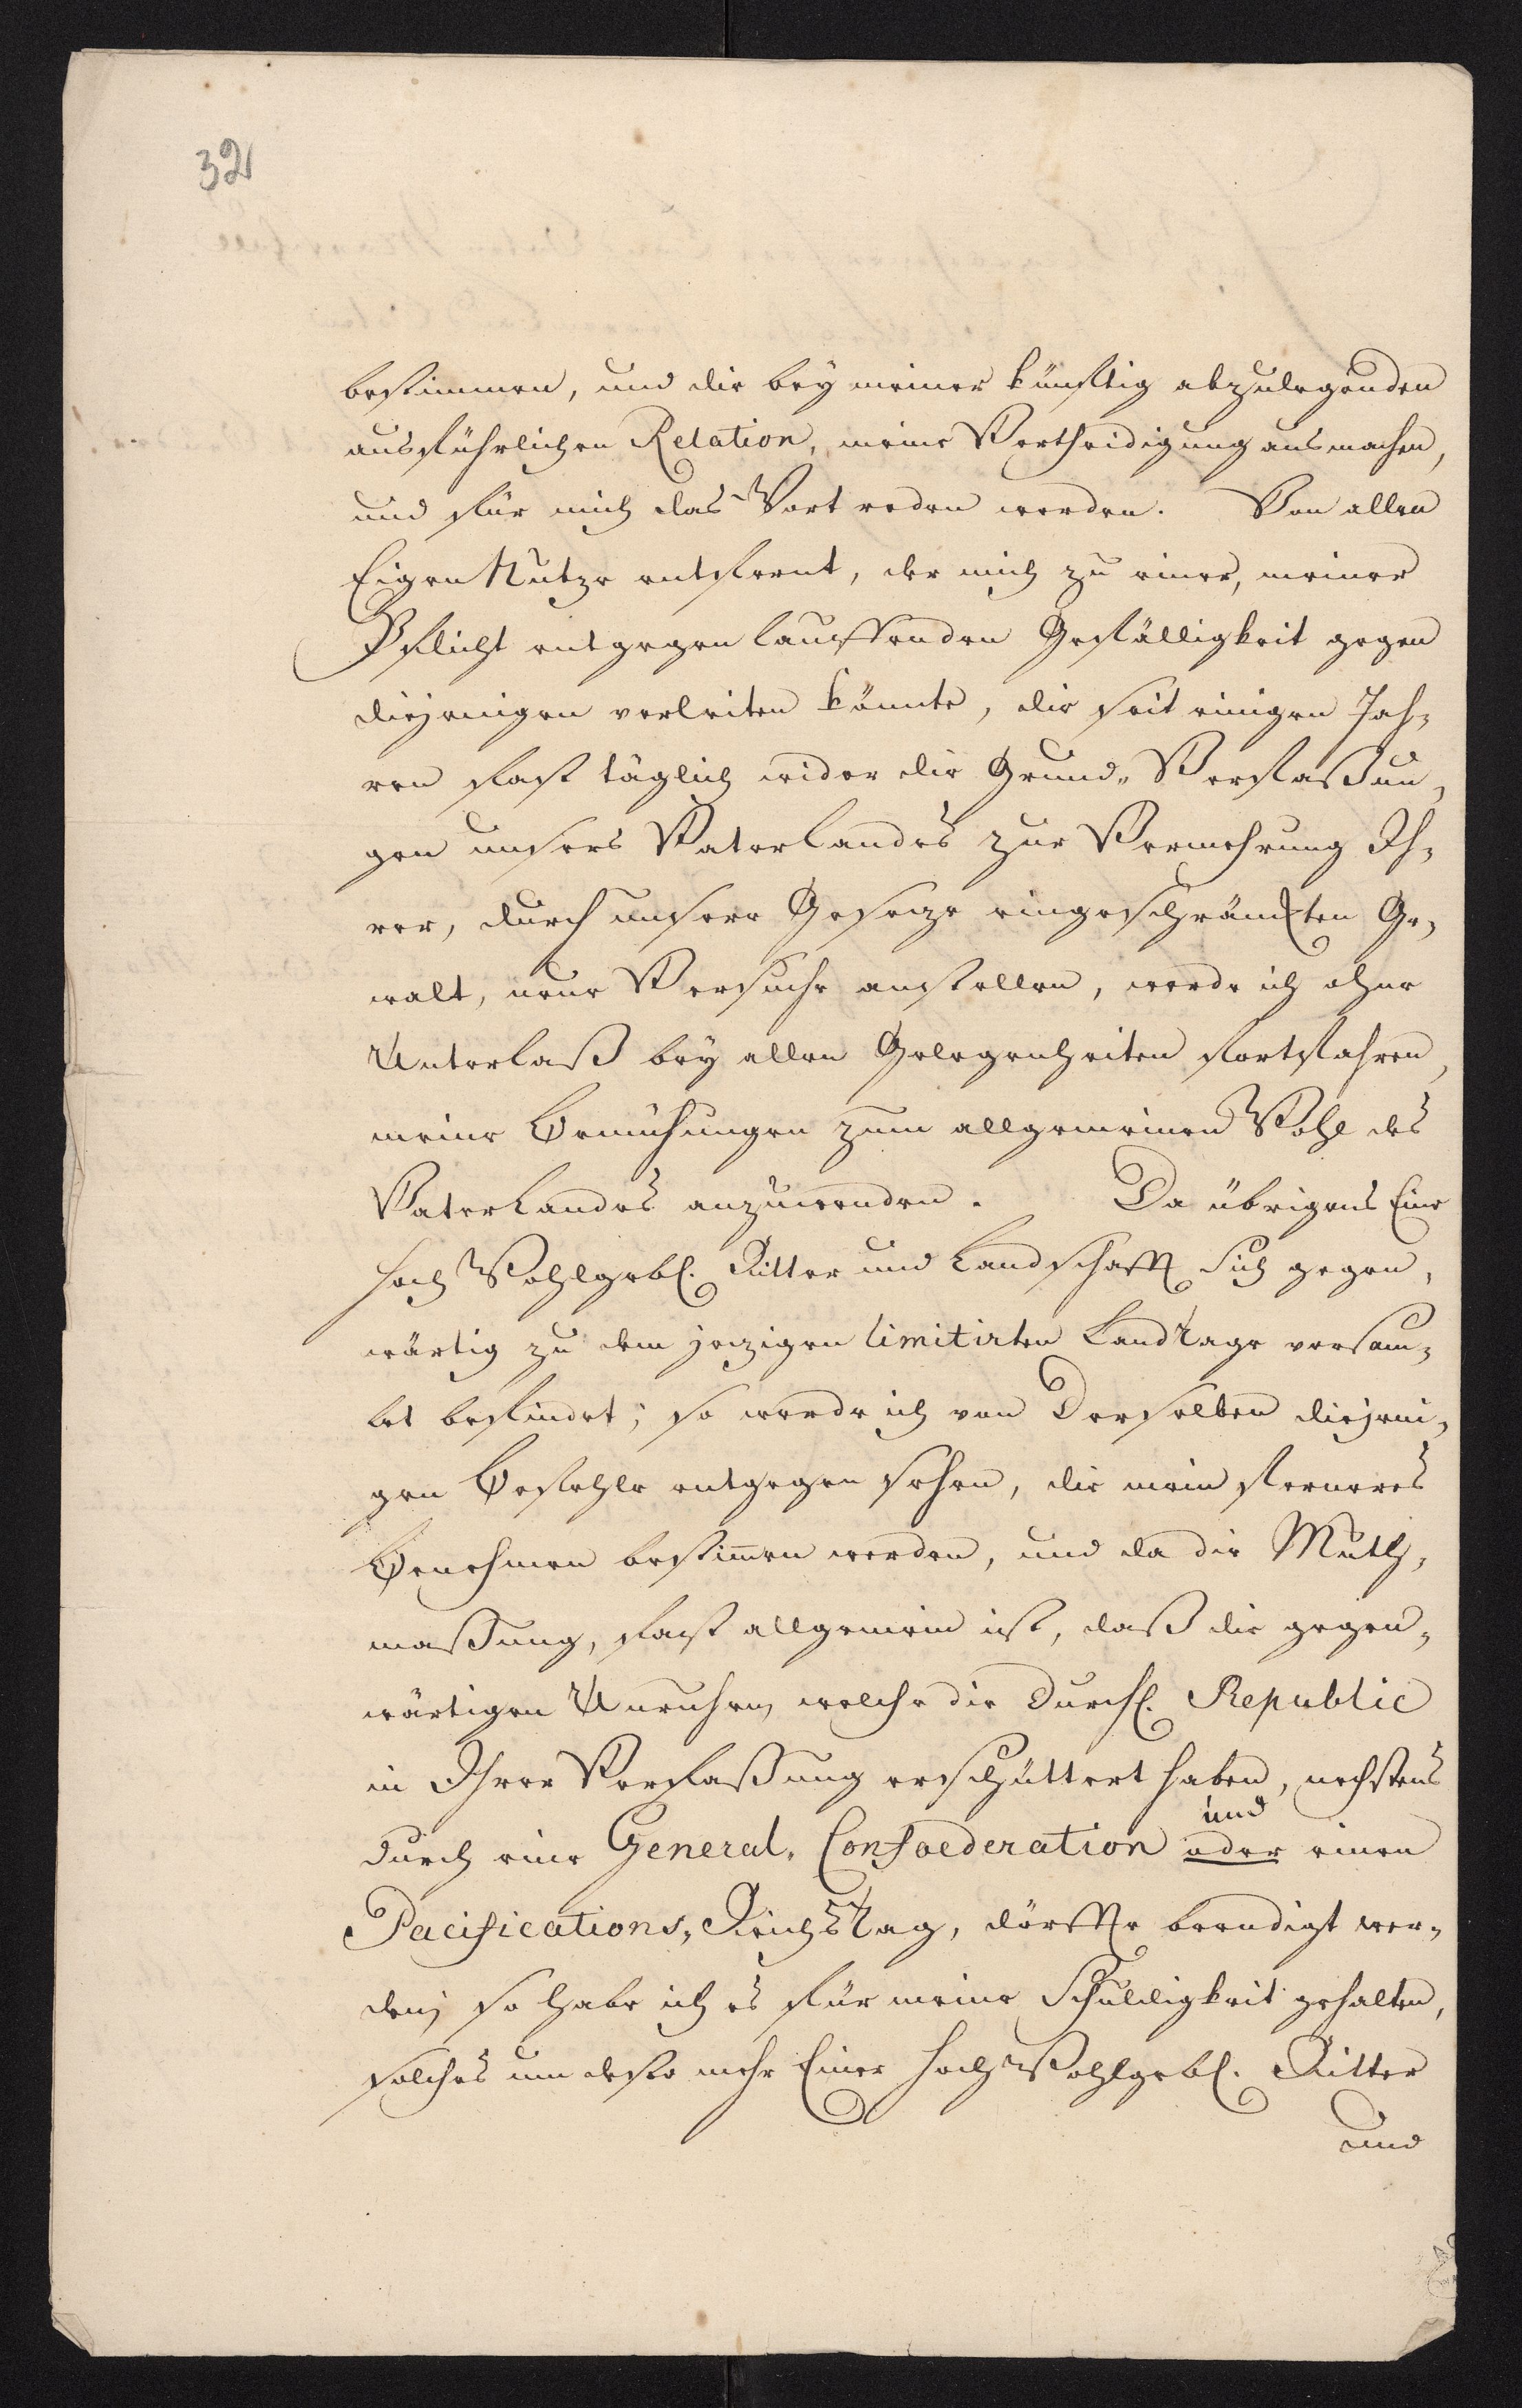 32
bestimmen, und die bey meiner künftig abzulegenden
ausführlichen Relation, meine Vertheidigung ausmachen,
und für mich das Wort reden werden. Von allen
Eigen Nutze entfernt, der mich zu einer, meiner
Pflicht entgegen lauffenden Gefälligkeit gegen
diejenigen verleiten könnte, die seit einigen Jah-
ren fast täglich wider die Grund-Verfaßun-
gen unsers Vaterlandes zur Vermehrung Ih-
rer, durch unsere Geseze eingeschränckten Ge-
walt, neue Versuche anstellen, werde ich ohne
Unterlaß bey allen Gelegenheiten fortfahren,
meine Bemühungen zum allgemeinen Wohl des
Vaterlandes anzuwenden. Da übrigens Eine
Hoch Wohlgebl. Ritter und Landschafft Sich gegen-
wärtig zu dem jezigen limitirten Landtage versam-
let befindet; so werde ich von Derselben diejeni-
gen Befehle entgegen sehen, die mein ferneres
Benehmen bestimen werden, und da die Muth-
maßung, fast allgemein ist, daß die gegen-
wärtigen Unruhen, welche die Durchl. Republic
in Ihrer Verfaßung erschüttert haben, nechstens
und
durch eine General-Confoederation oder einen
Pacifications-Reichs Tag, dörffte beendigt wer-
den; so habe ich es für meine Schuldigkeit gehalten,
solches um desto mehr Einer Hoch Wohlgebl. Ritter
und